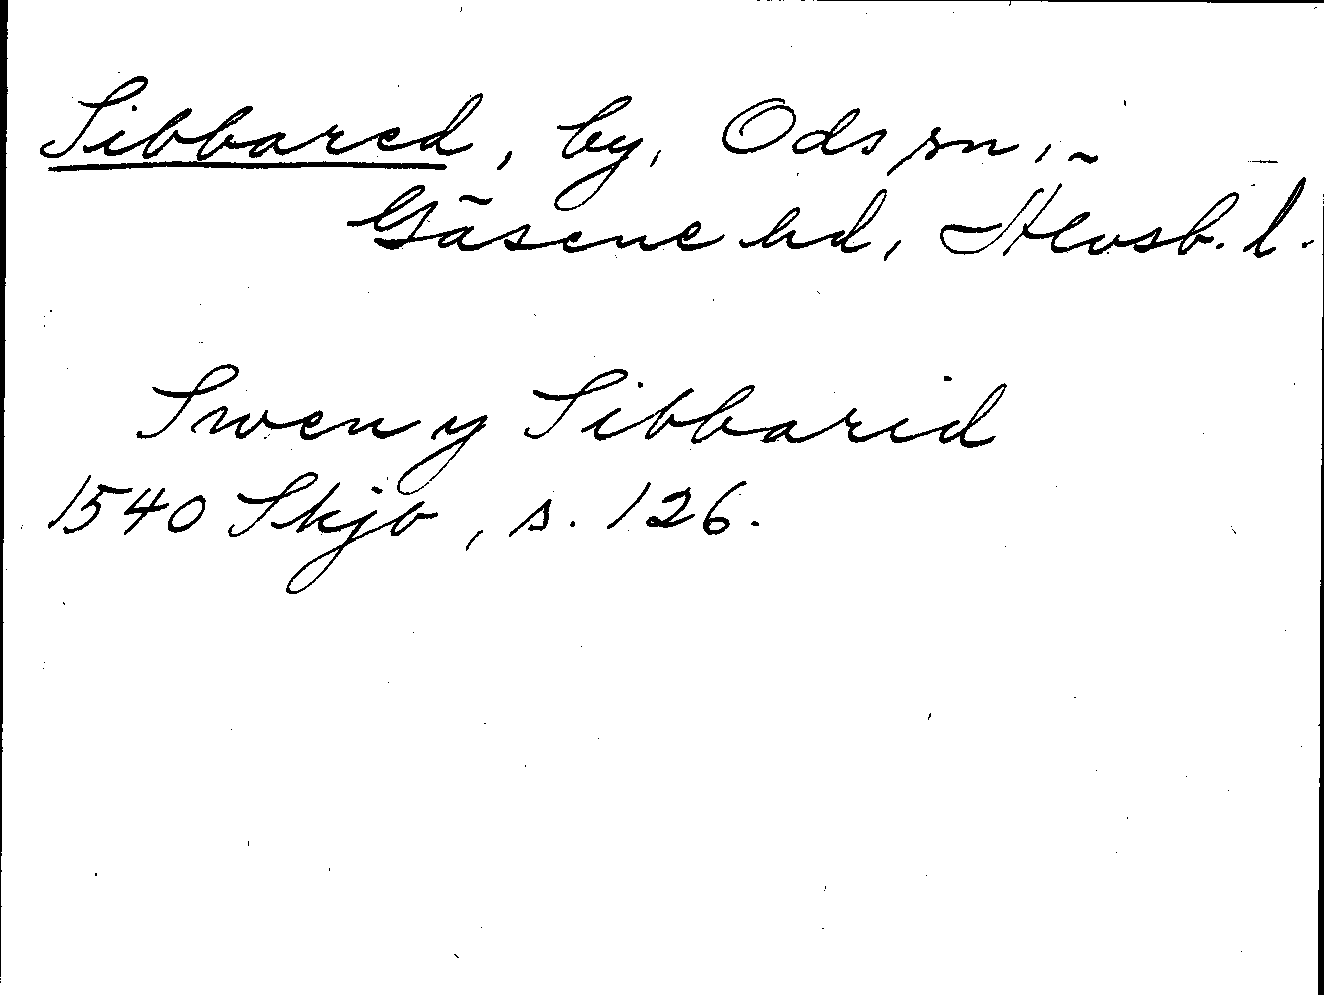 Sibbared, by, Ods sn,
Gäsene hd, Älvsb. l.
Swen y Sibbarid
1540 Skjb, s. 126.